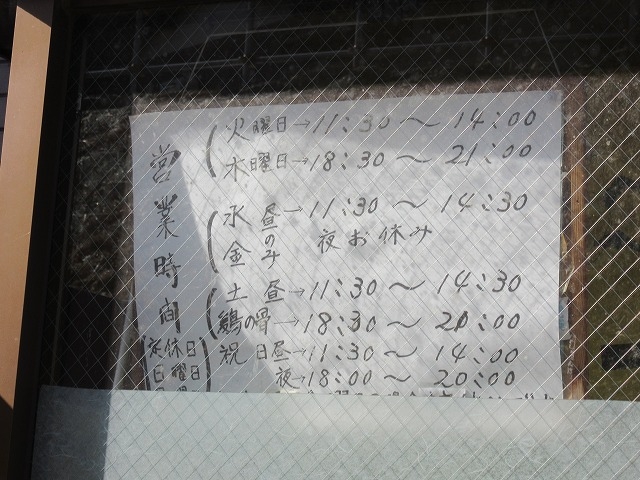 営業時間
火曜日→11:30～14:00
木曜日→18:30～21:00
水 昼→11:30～14:30
金 のみ 夜お休み
土 昼→11:30～14:30
鶏の骨→18:30～20:00
祝日昼→11:30～14:00
夜→18:00～20:00
定休日
日曜日